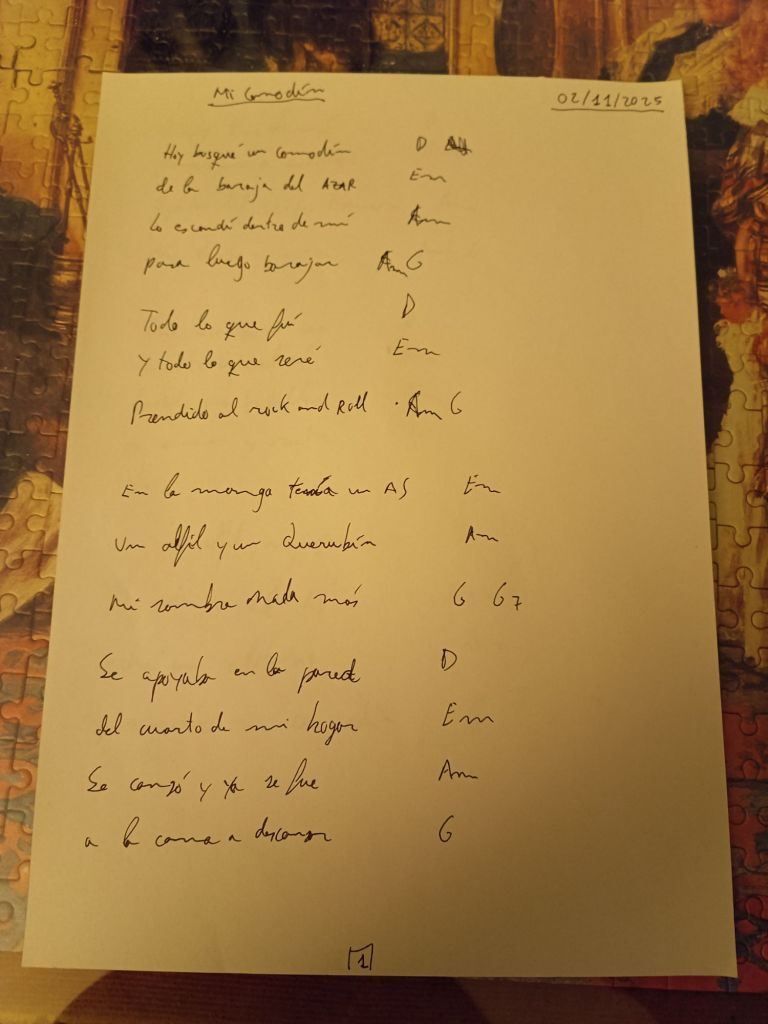 Mi Comodín
02/11/2025
Hoy busqué un comodín D
de la baraja del AZAR Em
Lo escondí dentro de mí Am
para luego barajar Am G
Todo lo que fuí D
Y todo lo que seré Em
Prendido al rock and Roll . Am G
En la manga tenía un AS Em
Un alfil y un Querubín Am
Mi sombra nada más G G7
Se apoyaba en la pared D
del cuarto de mi hogar Em
Se cansó y ya se fue Am
a la cama a descansar G
1